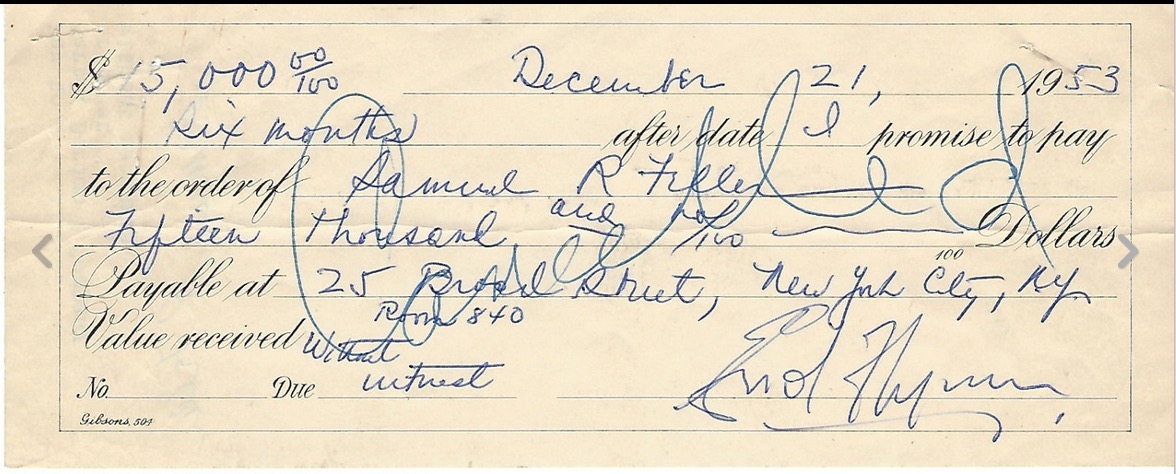 $ 15,000 00/100 December 21, 1953
Six months after date I promise to pay
to the order of Samuel R Feller
Fifteen Thousand and no/100 Dollars
100
Payable at 25 Broad Street, New York City, NY
Room 840
Value received Without
interest
No. Due
Errol Flynn
Gibsons, 504